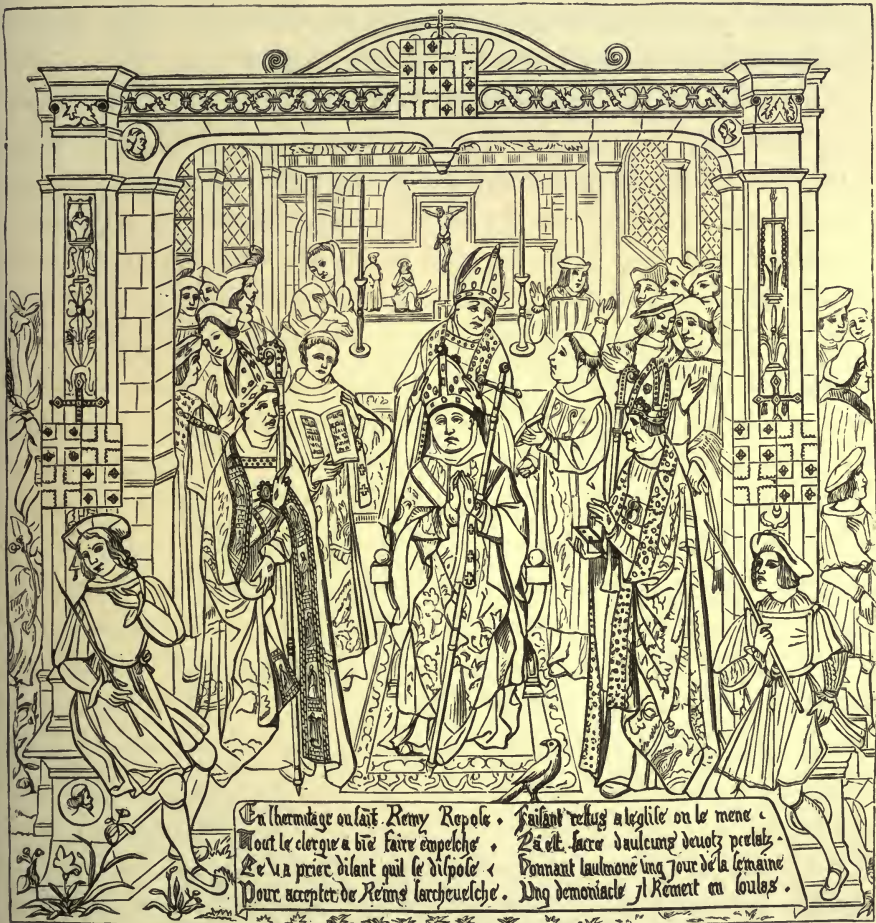 En lhermitage ou sait Remy Repose .
Tout le clergie a bie faire empesche .
Le va prier disant quil se dispose .
Pour accepter de Reims larcheuesche .
Faisant reffus a leglise on le mene .
La est sacre daulcuns devotz prelatz .
Donnant laulmone ung jour de la semaine
Ung demoniacle Jl Remect en soulas .